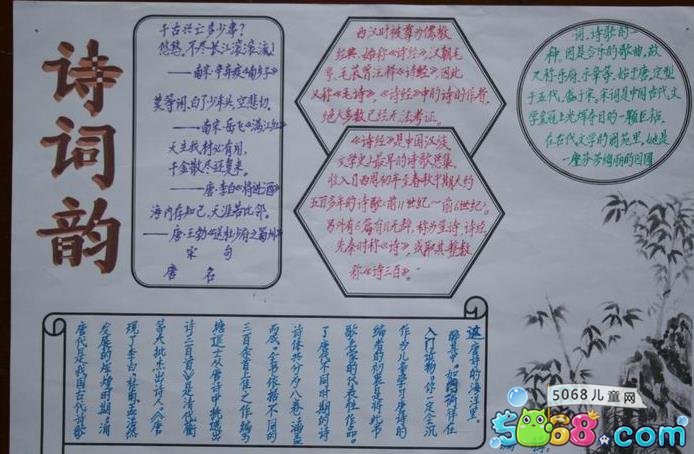 诗词韵
千古兴亡多少事？
悠悠，不尽长江滚滚流！
——南宋·辛弃疾《南乡子》
莫等闲，白了少年头，空悲切，
——南宋·岳飞《满江红》
天生我材必有用，
千金散尽还复来。
——唐·李白《将进酒》
海内存知己，天涯若比邻。
——唐·王勃《送杜少府之蜀州》
宋 句
唐 名
西汉时被尊为儒教
经典，始称《诗经》，汉朝毛
亨、毛苌曾注释《诗经》，因此
又称《毛诗》，《诗经》中的诗的作者，
绝大多数已经无法考证。
《诗经》是中国汉族
文学史上最早的诗歌总集，
收入自西周初年至春秋中期大约
五百多年的诗歌（前11世纪～前6世纪）。
另外有6篇有目无辞，称为笙诗，诗经
先秦时称《诗》，或取其整数
称《诗三百》。
词，诗歌的一
种，因是合乐的歌曲，故
又称乐府，乐章等，始于唐，定型
于五代，盛于宋。宋词是中国古代文
学皇冠上光辉夺目的一颗巨钻，
在古代文学的阆苑里，她是
一座芬芳绚丽的园圃
唐代是我国古代诗歌
发展的辉煌时期，涌
现了李白、杜甫、孟浩然
等大批杰出诗人，《唐
诗三百首》是清代衡
塘退士从唐诗中挑选出
三百余首最佳之作编写
而成。全书依据不同的
诗体共分为八卷，涵盖
了唐代不同时期的诗
歌名家的代表性作品。
编者的初衷是将此书
作为儿童学习唐诗的
入门读物，你一定会沉
醉其中，如同徜徉在
这唐诗的海洋里。
5068儿童网
5068.com